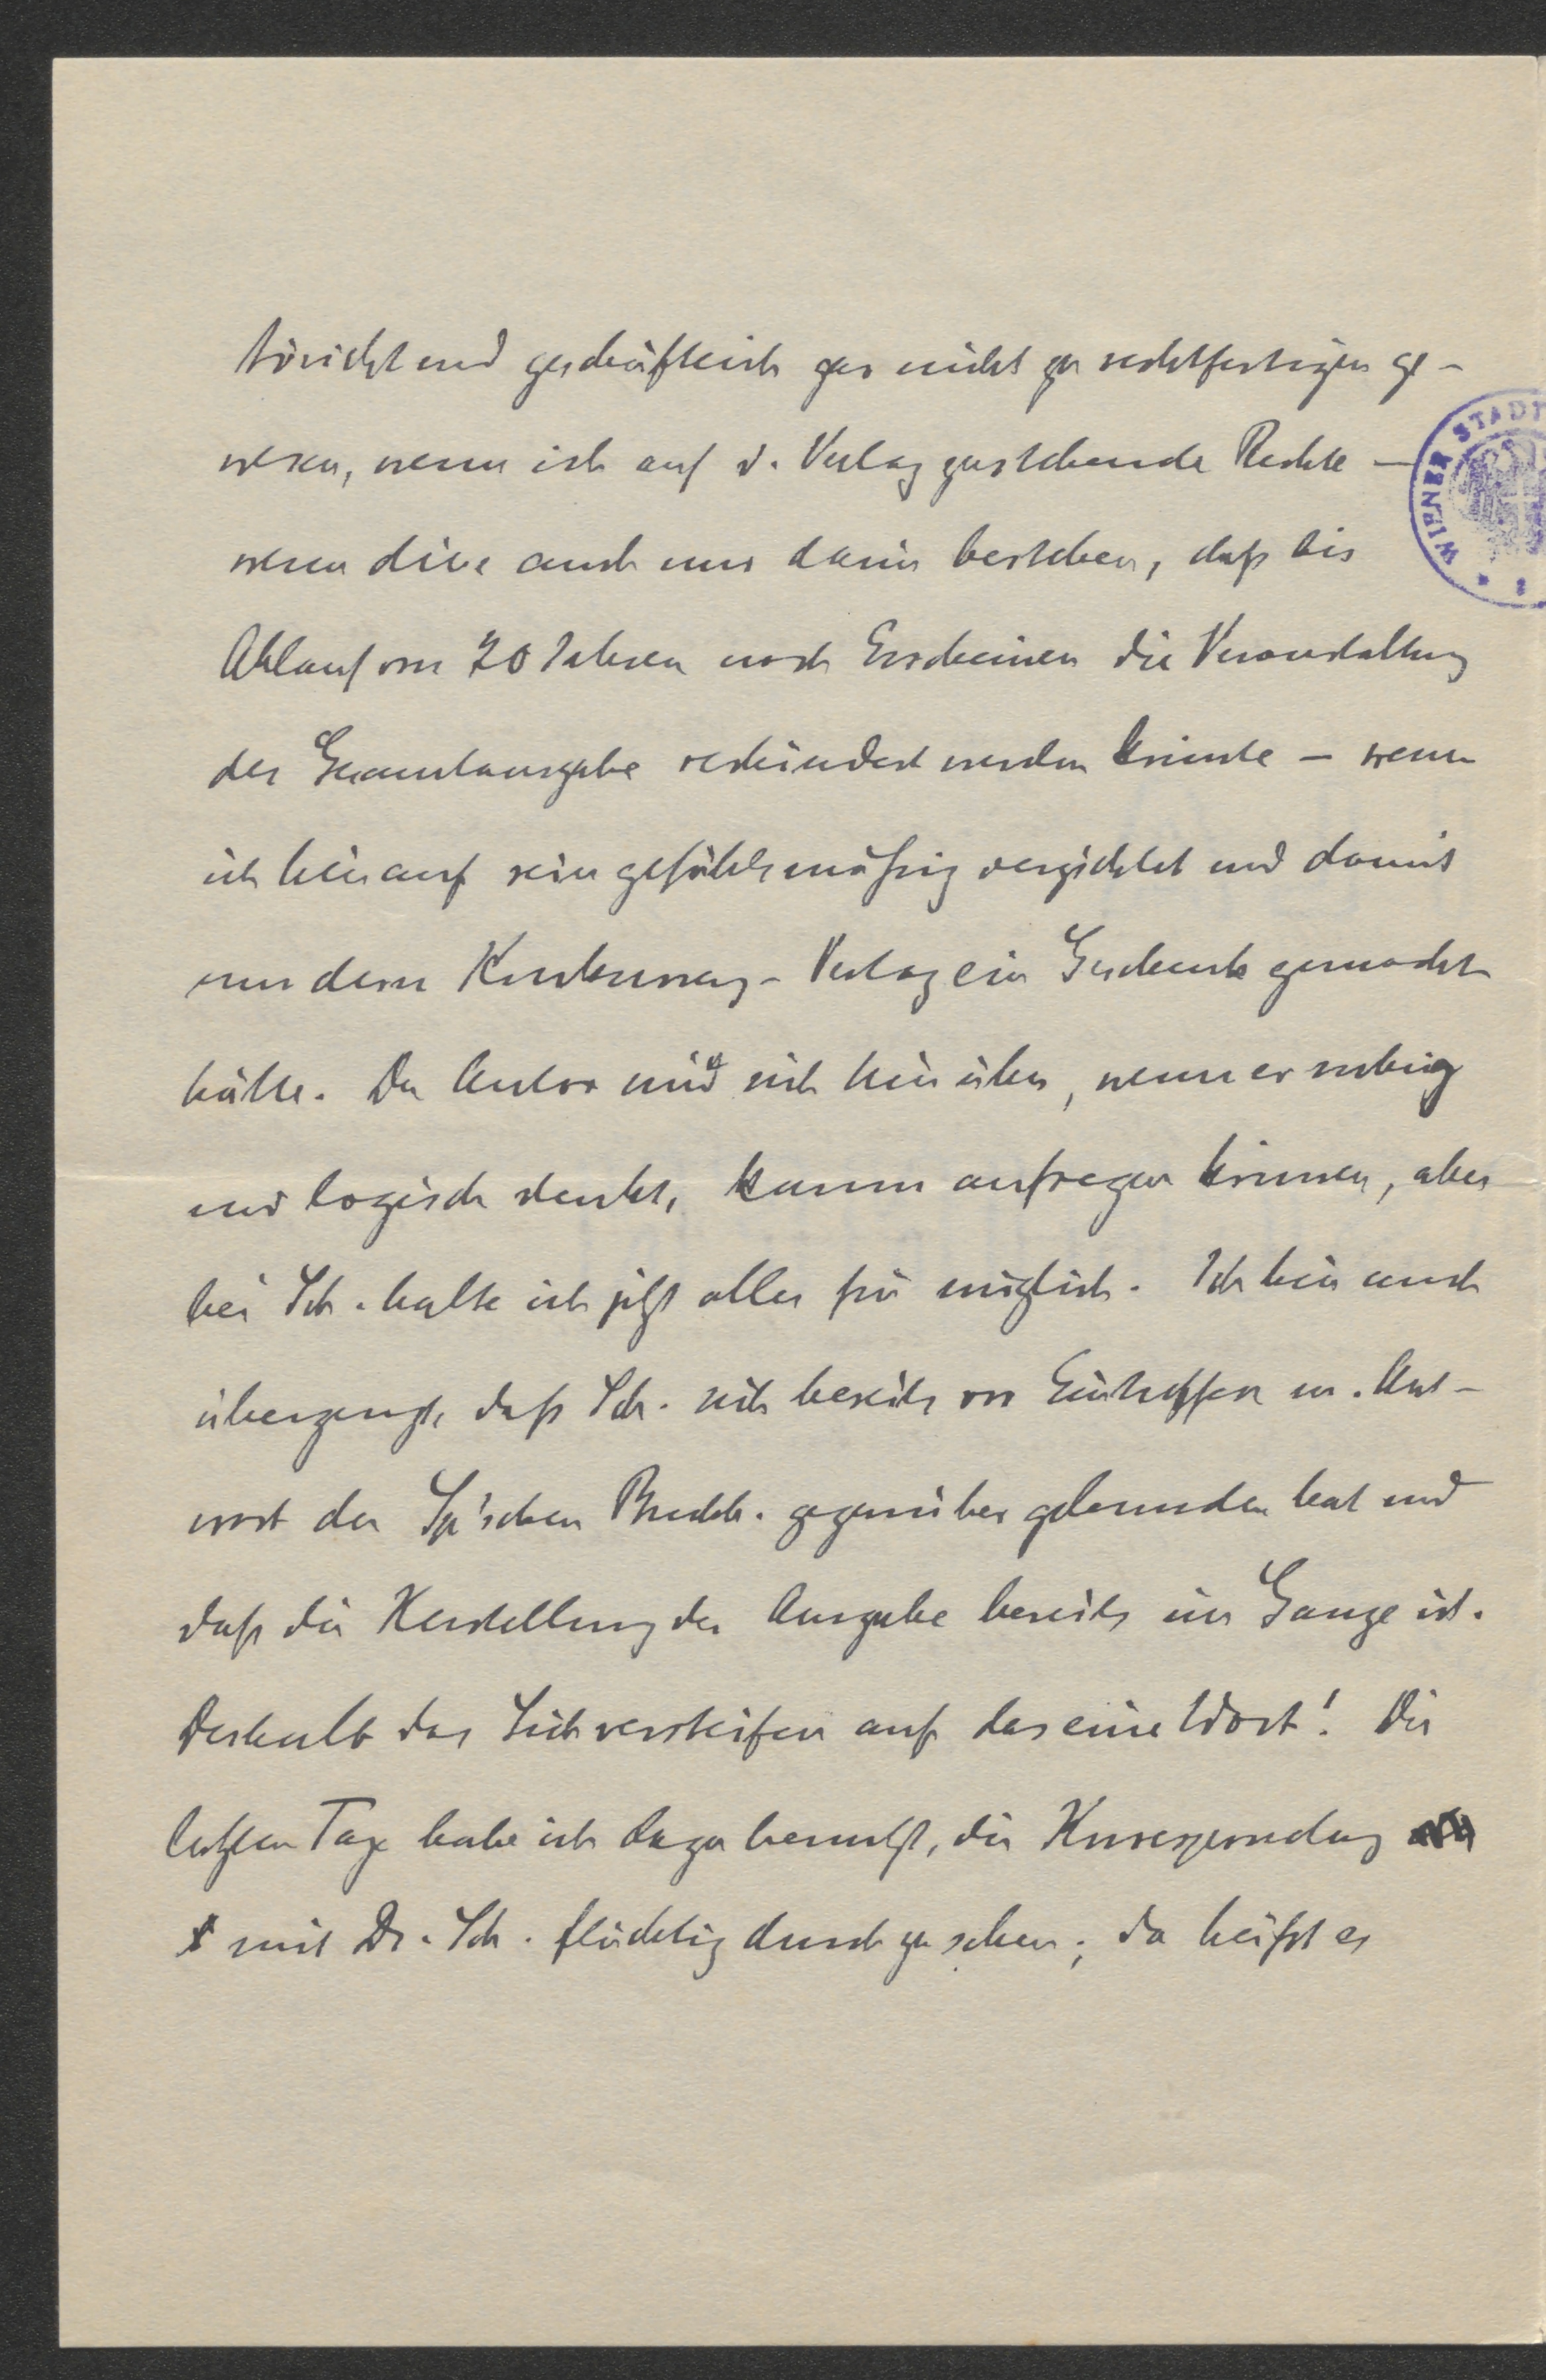 töricht und geschäftlich gar nicht zu rechtfertigen ge-
wesen, wenn ich auf d. Verlag zustehende Rechte —
wenn diese auch nur darin bestehen, daß bis
Ablauf von 20 Jahren nach Erscheinen die Veranstaltung
der Gesamtausgabe verhindert werden könnte — wenn
ich hierauf rein gefühlsmäßig verzichtet und damit
nur dem Konkurrenz-Verlag ein Geschenk gemacht
hätte. Der Autor wird sich hierüber, wenn er ruhig
und logisch denkt, kaum aufregen können, aber
bei Sch. halte ich jetzt alles für möglich. Ich bin auch
überzeugt, daß Sch. sich bereits vor Eintreffen m. Ant-
wort der Sp'schen Buchh. gegenüber gebunden hat und
daß die Herstellung der Ausgabe bereits im Gange ist.
Deshalb das Sichversteifen auf das eine Wort! Die
letzten Tage habe ich dazu benutzt, die Korrespondenz
mit Dr. Sch. flüchtig durchzusehen; da heißt es
WIENER STADT